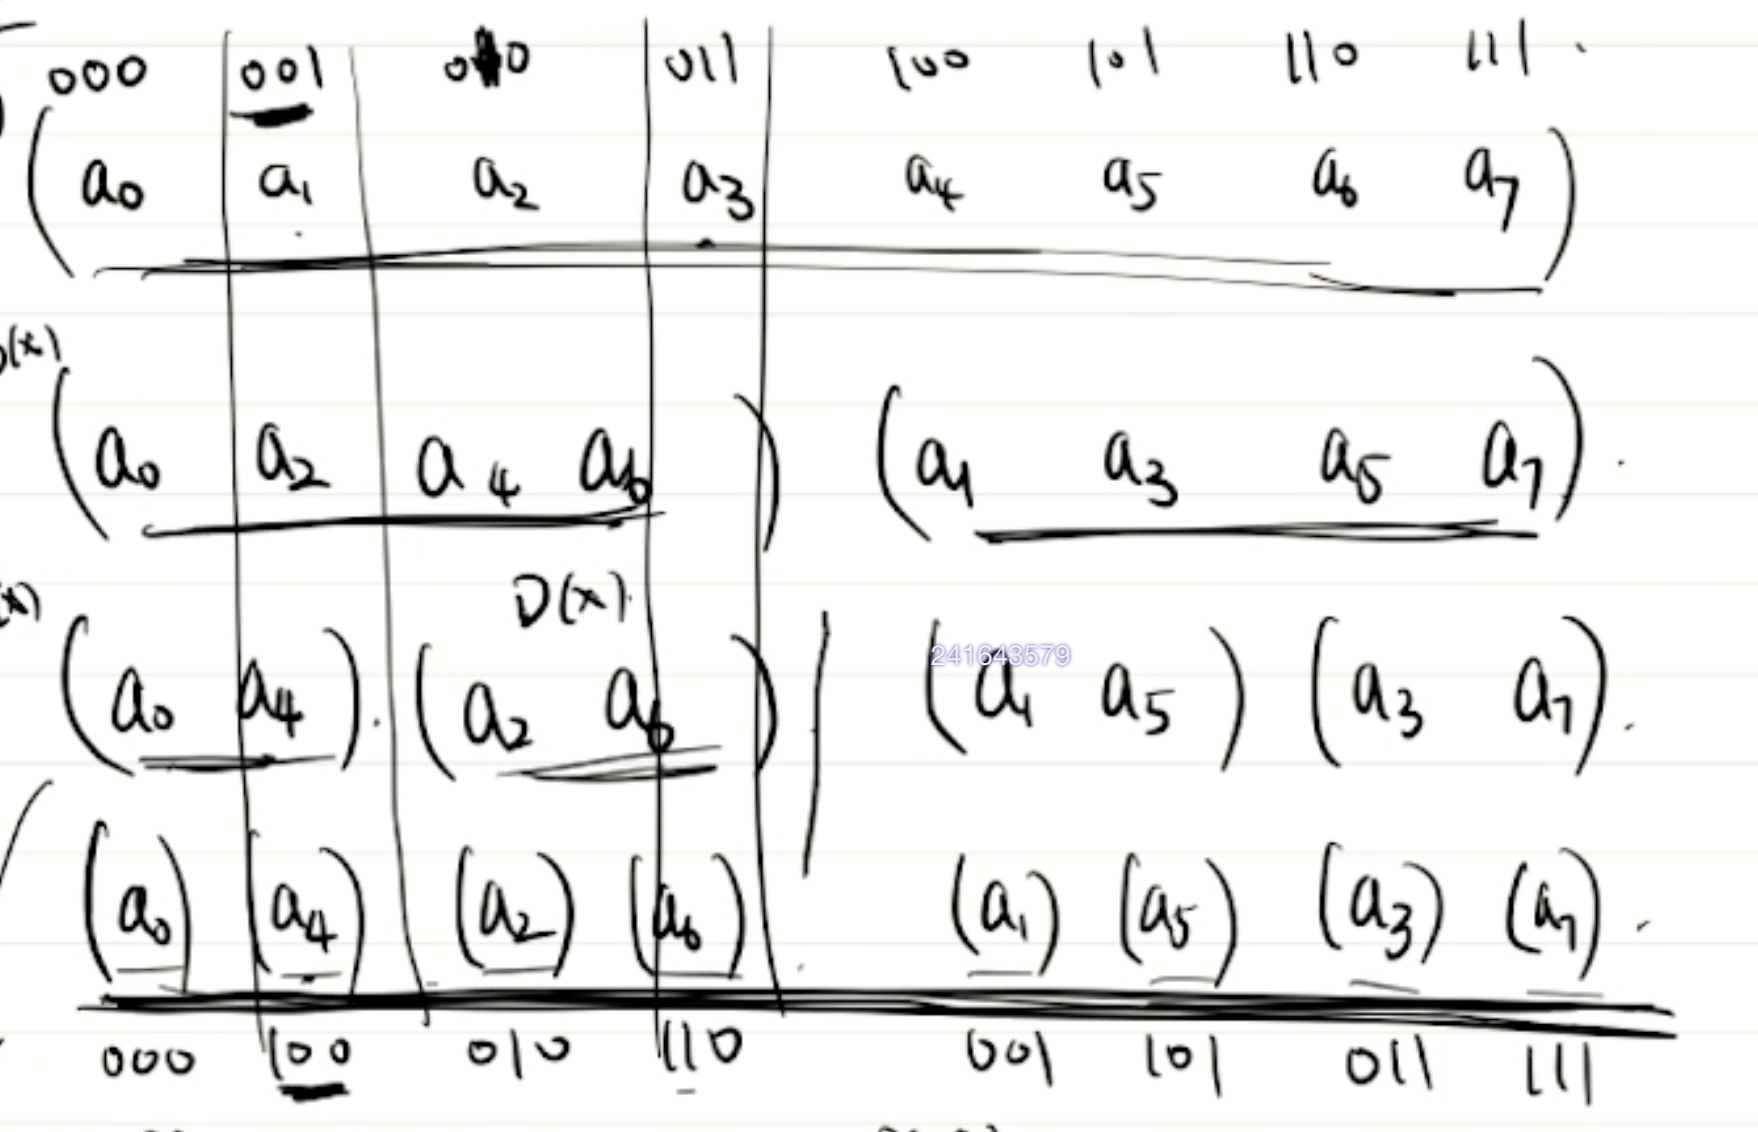 000 001 010 011 100 101 110 111
( a0 a1 a2 a3 a4 a5 a6 a7 )
(x)
( a0 a2 a4 a6 ) ( a1 a3 a5 a7 ) .
(x) D(x).
( a0 a4 ) . ( a2 a6 ) | ( a1 a5 ) ( a3 a7 ) .
241643579
(a0) (a4) (a2) (a6) (a1) (a5) (a3) (a7) .
000 100 010 110 001 101 011 111